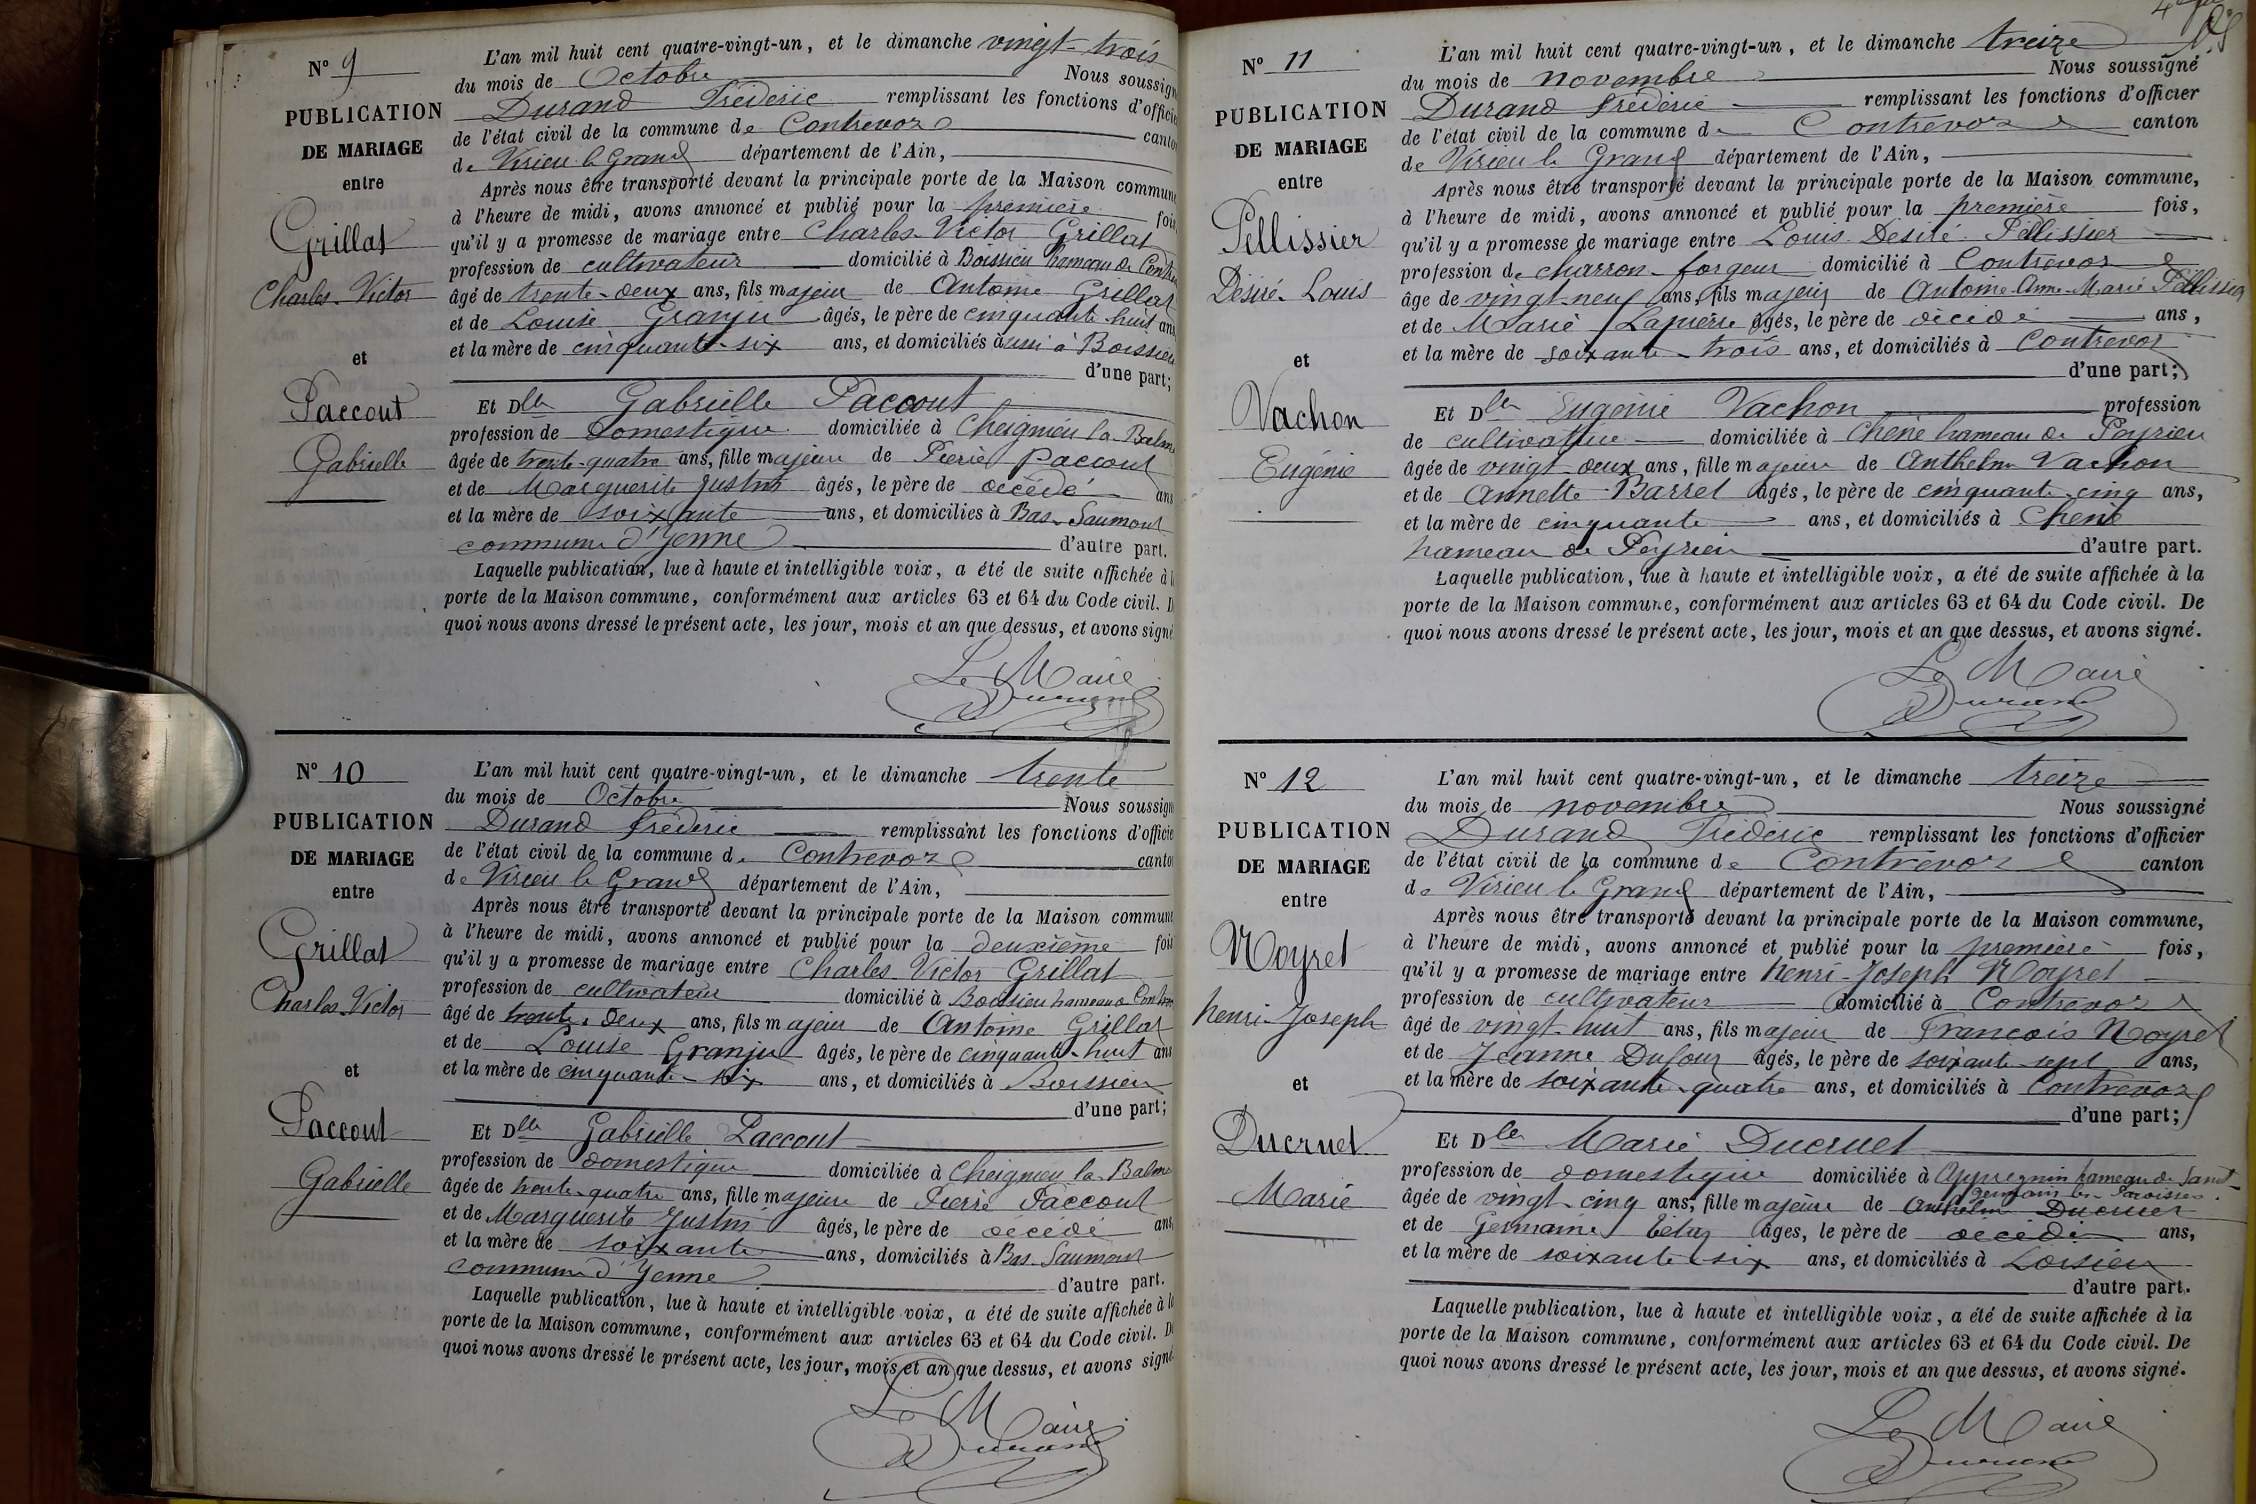 N° 9
PUBLICATION
DE MARIAGE
entre
Grillat
Charles-Victor
et
Paccout
Gabrielle
L'an mil huit cent quatre-vingt-un, et le dimanche vingt-trois
du mois de Octobre Nous soussign
Durand Fréderic remplissant les fonctions d'officie
de l'état civil de la commune de Contrevoz canto
de Virieu le Grand département de l'Ain,
Après nous être transporté devant la principale porte de la Maison commune
à l'heure de midi, avons annoncé et publié pour la première fois
qu'il y a promesse de mariage entre Charles-Victor Grillat
profession de cultivateur domicilié à Boissieu hameau de Contre
âgé de trente-deux ans, fils majeur de Antoine Grillat
et de Louise Granju âgés, le père de cinquante-huit ans
et la mère de cinquante-six ans, et domiciliés aussi à Boissieu
d'une part;
Et Dlle Gabrielle Paccout
profession de domestique domiciliée à Cheignieu la-Balme
âgée de trente-quatre ans, fille majeure de Pierre Paccout
et de Marguerite Justin âgés, le père de décédé ans
et la mère de soixante ans, et domiciliés à Bas-Saumont
commune d'Yenne d'autre part.
Laquelle publication, lue à haute et intelligible voix, a été de suite affichée à l
porte de la Maison commune, conformément aux articles 63 et 64 du Code civil. D
quoi nous avons dressé le présent acte, les jour, mois et an que dessus, et avons signé
Le Maire
Durand
N° 10
PUBLICATION
DE MARIAGE
entre
Grillat
Charles-Victor
et
Paccout
Gabrielle
L'an mil huit cent quatre-vingt-un, et le dimanche trente
du mois de Octobre Nous soussign
Durand fréderic remplissant les fonctions d'officie
de l'état civil de la commune de Contrevoz canto
de Virieu le Grand département de l'Ain,
Après nous être transporté devant la principale porte de la Maison commune
à l'heure de midi, avons annoncé et publié pour la deuxième fois
qu'il y a promesse de mariage entre Charles-Victor Grillat
profession de cultivateur domicilié à Boissieu hameau de Contre
âgé de trente-deux ans, fils majeur de Antoine Grillat
et de Louise Granju âgés, le père de cinquante-huit ans
et la mère de cinquante-six ans, et domiciliés à Boissieu
d'une part;
Et Dlle Gabrielle Paccout
profession de domestique domiciliée à Cheignieu la-Balme
âgée de trente-quatre ans, fille majeure de Pierre Paccout
et de Marguerite Justin âgés, le père de décédé ans,
et la mère de soixante ans, domiciliés à Bas-Saumont
commune d'Yenne d'autre part.
Laquelle publication, lue à haute et intelligible voix, a été de suite affichée à la
porte de la Maison commune, conformément aux articles 63 et 64 du Code civil. D
quoi nous avons dressé le présent acte, les jour, mois et an que dessus, et avons signé
Le Maire
Durand
N° 11
PUBLICATION
DE MARIAGE
entre
Pellissier
Désiré-Louis
et
Vachon
Eugénie
L'an mil huit cent quatre-vingt-un, et le dimanche treize
du mois de novembre Nous soussigné
Durand fréderic remplissant les fonctions d'officier
de l'état civil de la commune de Contrevoz canton
de Virieu le Grand département de l'Ain,
Après nous être transporté devant la principale porte de la Maison commune,
à l'heure de midi, avons annoncé et publié pour la première fois,
qu'il y a promesse de mariage entre Louis-Désiré Pellissier
profession de charron-forgeur domicilié à Contrevoz
âgé de vingt-neuf ans, fils majeur de Antoine-Anne-Marie Pellissier
et de Marie Lapierre âgés, le père de décédé ans,
et la mère de soixante-trois ans, et domiciliés à Contrevoz
d'une part;
Et Dlle Eugénie Vachon profession
de cultivatrice domiciliée à Chêne hameau de Peyrieu
âgée de vingt-deux ans, fille majeure de Anthelme Vachon
et de Annette Barrel âgés, le père de cinquante-cinq ans,
et la mère de cinquante ans, et domiciliés à Chêne
hameau de Peyrieu d'autre part.
Laquelle publication, lue à haute et intelligible voix, a été de suite affichée à la
porte de la Maison commune, conformément aux articles 63 et 64 du Code civil. De
quoi nous avons dressé le présent acte, les jour, mois et an que dessus, et avons signé.
Le Maire
Durand
N° 12
PUBLICATION
DE MARIAGE
entre
Moyret
henri-Joseph
et
Ducruet
Marie
L'an mil huit cent quatre-vingt-un, et le dimanche treize
du mois de novembre Nous soussigné
Durand Fréderic remplissant les fonctions d'officier
de l'état civil de la commune de Contrevoz canton
de Virieu le Grand département de l'Ain,
Après nous être transporté devant la principale porte de la Maison commune,
à l'heure de midi, avons annoncé et publié pour la première fois,
qu'il y a promesse de mariage entre henri-Joseph Moyret
profession de cultivateur domicilié à Contrevoz
âgé de vingt-huit ans, fils majeur de François Moyret
et de Jeanne Dufour âgés, le père de soixante-sept ans,
et la mère de soixante-quatre ans, et domiciliés à Contrevoz
d'une part;
Et Dlle Marie Ducruet
profession de domestique domiciliée à appregnin hameau de Saint-
germain les-Paroisses.
âgée de vingt-cinq ans, fille majeure de Anthelme Ducruet
et de Germaine âgés, le père de décédé ans,
et la mère de soixante-six ans, et domiciliés à Loisieu
d'autre part.
Laquelle publication, lue à haute et intelligible voix, a été de suite affichée à la
porte de la Maison commune, conformément aux articles 63 et 64 du Code civil. De
quoi nous avons dressé le présent acte, les jour, mois et an que dessus, et avons signé.
Le Maire
Durand